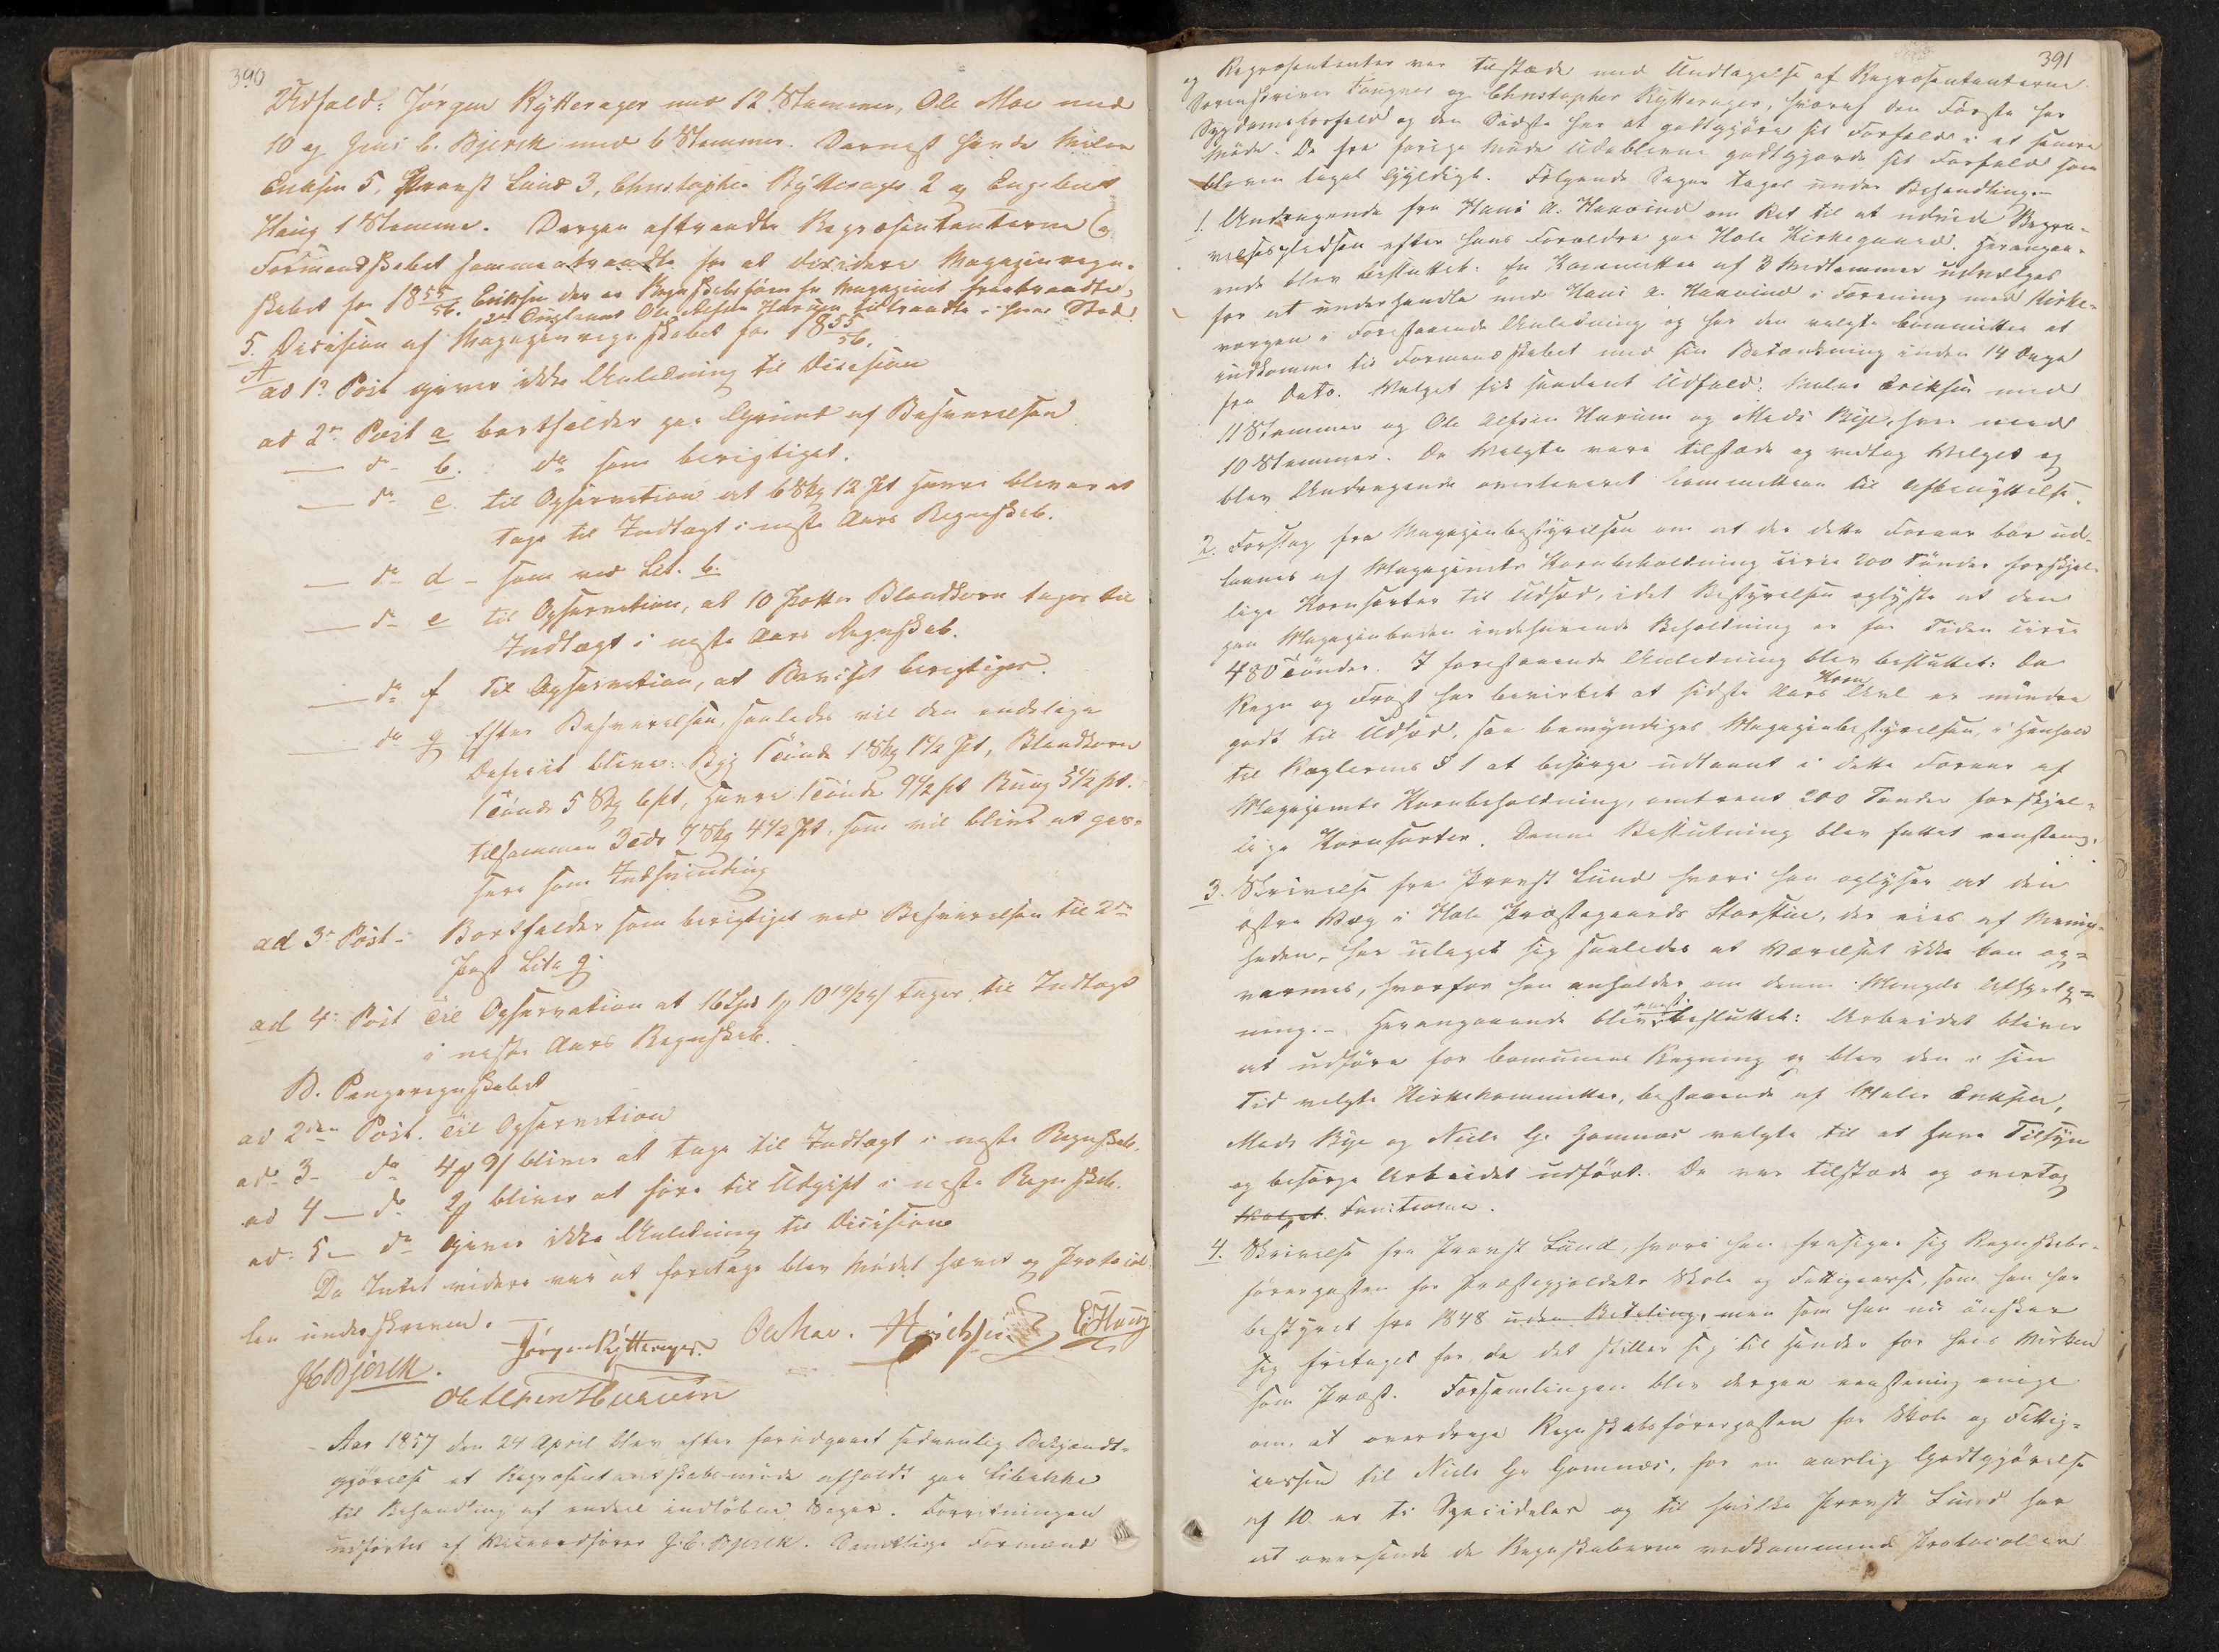 390
Udfald: Jørgen Rytterager med 12 Stemmer, Ole Moe med
10 og Jens C. Bjerck med 6 Stemmer. Dernæst havde Maler
Eriksen 5, Provst Lund 3, Christopher Rytterager 2 og Engebret
Haug 1 Stemme. Derpaa aftraadte Repræsentanterne og
Formandskabet sammentraadte for at decidere Magazinregn-
skabet for 1855/56. Eriksen der er Regnskabsfører for Magazinet fratraadte,
2den Suppleant Ole Alfsen Hurum tiltraadte i hans Sted.
5. Decision af Magazinregnskabet for 1855/56.
A
ad 1ste Post giver ikke Anledning til Decision
ad 2den Post a bortfalder paa Grund af Besvarelsen
— do b. do som berigtiget.
— do c. til Observation at 6 Skp 12 Pt Havre bliver at
tage til Indtægt i næste Aars Regnskab.
— do d - som ved Lit. b.
— do e til Observation, at 10 Potter Blandkorn tages til
Indtægt i næste Aars Regnskab.
— do f Til Observation, at Beviset berigtiges.
— do g Efter Besvarelsen, saaledes vil den endelige
Deficit blive: Byg 1 Tønde 1 Skp 1½ Pt, Blandkorn
1 Tønde 5 Skp 6 Pt, Havre 1 Tønde 9½ Pt Rug 5½ Pt.
tilsammen 3 Tdr 7 Skp 4½ Pt, som vil blive at pas-
sere som Indsvinding
ad 3die Post - Bortfalder som berigtiget ved Besvarelsen til 2den
Post Lita g.
ad 4de Post Til Observation at 16 Spd 1 10 19/24 tages til Indtægt
i næste Aars Regnskab.
B. Pengeregnskabet
ad 2den Post. Til Observation
ad 3 - do 4 9 bliver at tage til Indtægt i næste Regnskab.
ad 4 — do 2 bliver at føre til Udgift i næste Regnskab.
ad 5 — do Giver ikke Anledning til Decision
Da Intet videre var at foretage blev Mødet hævet og Protocol-
len underskreven. —
Jørgen Rytterager. Ole Moe. E Haug
JC Bjerck.
Ole Alfsen Hurum
Aar 1857 den 24 April blev efter forudgaaet sædvanlig Bekjendt-
gjørelse et Repræsentantskabsmøde afholdt paa Libakke
til Behandling af endeel indløbne Sager. Forretningen
udførtes af Viceordfører J. C. Bjerck. Samtlige Formænd
391
og Repræsentanter var tilstæde med Undtagelse af Repræsentanterne
Sorenskriver Fougner og Christopher Rytterager, hvoraf den Første har
Sygdomsforfald og den Sidste har at godtgjøre sit Forfald i et senere
Møde. De fra forrige Møde Udeblevne godtgjorde sit Forfald som
bleven taget gyldigt. Følgende Sager toges under Behandling. —
1. Andragende fra Hans A. Haavind om Ret til at udvide Begra-
velsespladsen efter hans Forældre paa Hole Kirkegaard. Herangaa-
ende blev besluttet: En Kommittee af 3 Medlemmer udvælges
for at underhandle med Hans A. Haavind i Forening med Kirke-
værgen i Forestaaende Anledning og har den valgte Committee at
indkomme til Formandskabet med sin Betænkning inden 14 Dage
fra Dato. Valget fik saadant Udfald: Maler Eriksen med
11 Stemmer og Ole Alfsen Hurum og Mads Bye, hver med
10 Stemmer. De Valgte vare tilstæde og vedtog Valget og
blev Andragende overleveret Committeen til Afbenyttelse.
2. Forslag fra Magazinbestyrelsen om at der dette Foraar bør ud-
laanes af Magazinets Kornbeholdning circa 200 Tønder forskjel-
lige Kornsorter til Udsæd, idet Bestyrelsen oplyste at den
paa Magazinboden indehavende Beholdning er for Tiden circa
480 Tønder. I forestaaende Anledning blev besluttet: Da
Regn og Frost har bevirket at sidste Aars Korn Avl er mindre
godt til Udsæd, saa bemyndiges Magazinbestyrelsen, i Henhold
til Reglernes § 1 at besørge udlaant i dette Foraar af
Magazinets Kornbeholdning, omtrent 200 Tønder forskjel-
lige Kornsorter. Denne Beslutning blev fattet eenstemg.
3. Skrivelse fra Provst Lund hvori han oplyser at den
østre Væg i Hole Præstegaards Storstue, der eies af Menig-
heden, har udaget sig saaledes at Værelset ikke kan op-
varmes, hvorfor han anholder om denne Mangels Afhjelp-
ning. — Herangaaende blev eenst. besluttet: Arbeidet bliver
at udføre for Comunens Regning og blev den i sin
Tid valgte Kirkekommittee, bestaaende af Maler Eriksen,
Mads Bye og Niels Gr Gomnæs valgte til at have Tilsyn
og besørge Arbeidet udført. De var tilstæde og overtog
Valget. Functionen.
4. Skrivelse fra Provst Lund, hvori han frasiger sig Regnskabs-
førerposten for Præstegjældets Skole og Fattigcasse, som han har
bestyret fra 1848 uden Betaling, men som han nu ønsker
sig fritaget for, da det stiller sig til Hinder for hans Virken
som Præst. Forsamlingen blev derpaa eenstemig enige
om, at overdrage Regnskabsførerposten for Skole og Fattig-
cassen til Niels Gr Gomnæs, for en aarlig Godtgjørelse
af 10 er ti Speciedaler og til hvilke Provst Lund har
at oversende de Regnskaberne vedkommende Protocoller